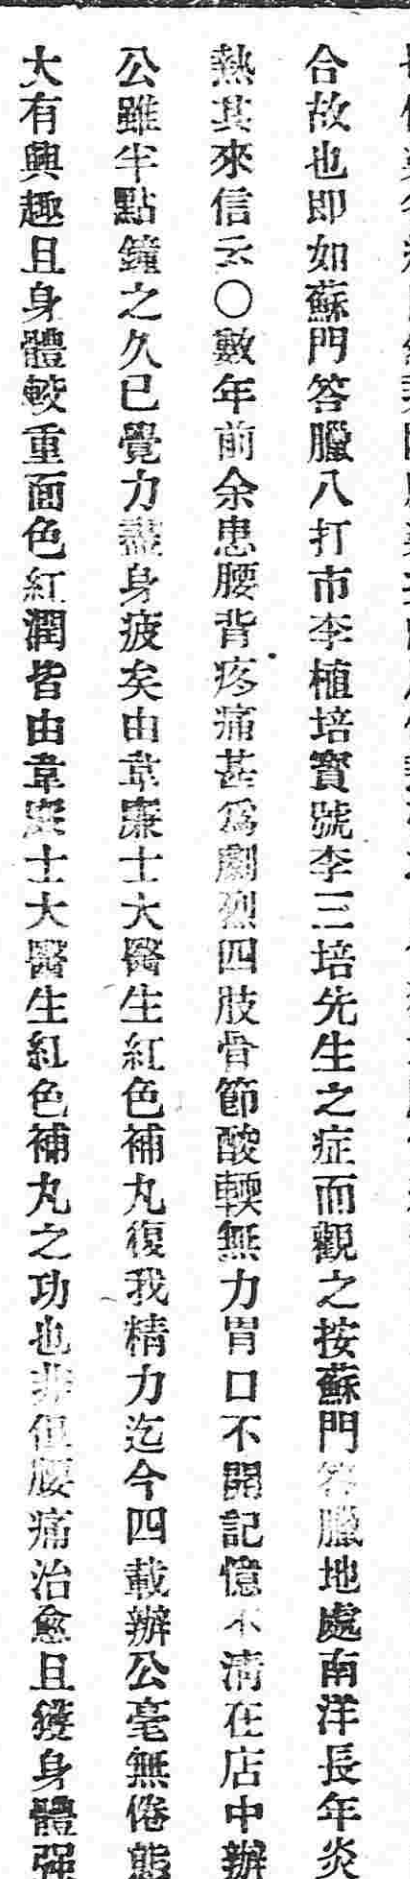 合故也即如蘇門答臘八打市李植培寳號李三培先生之症而觀之按蘇門答臘地處南洋長年炎
熱其來信云〇數年前余患腰背疼痛甚爲劇烈四肢骨節酸輭無力胃口不開記憶不淸在店中辦
公雖半點鐘之久已覺力盡身疲矣由韋廉士大醫生紅色補丸復我精力迄今四載辦公毫無倦態
大有興趣且身體較重面色紅潤皆由韋廉士大醫生紅色補丸之功也非但腰痛治愈且獲身體强